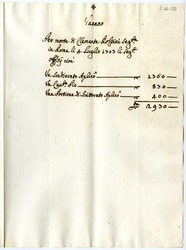 Vacano
Per morte di Clemente Rospini Segr.
in Roma li 4 Luglio 1703 li Seg.
offitij cioè
Un Scudierato Aplico — 1260 —
Un Cap.to Pio — 830 —
Una Portione di Scudierato Aplico — 400 —
2930 —